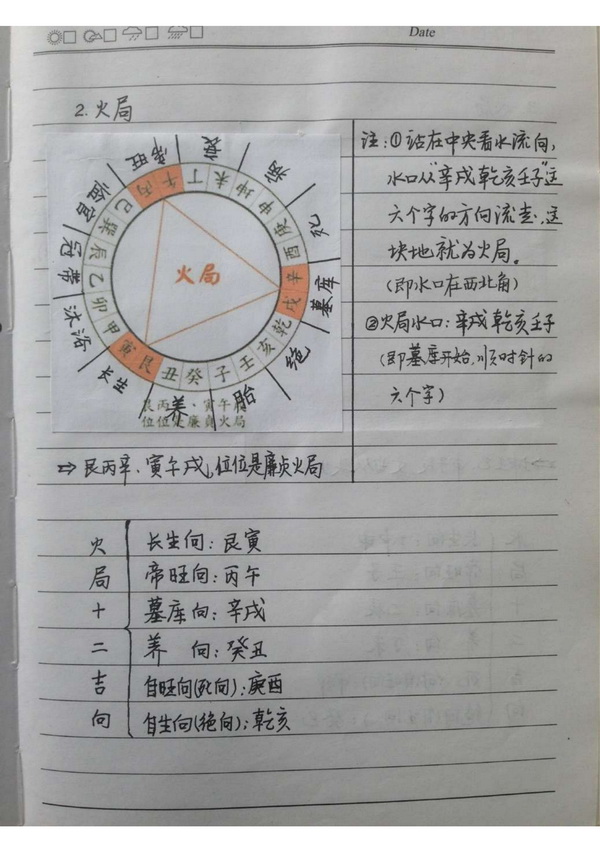 Date
2. 火局
帝旺
衰
病
死
墓库
绝
胎
养
长生
沐浴
冠带
临官
丙午丁未坤申庚酉辛戌乾亥壬子癸丑艮寅甲卯乙辰巽巳
火局
艮丙
寅午
位位是廉贞火局
注:①站在中央看水流向,
水口从“辛戌乾亥壬子”这
六个字的方向流走,这
块地就为火局。
(即水口在西北角)
②火局水口:辛戌乾亥壬子
(即墓库开始,顺时针的
六个字)
⇨艮丙辛、寅午戌,位位是廉贞火局
火局十二吉向
长生向:艮寅
帝旺向:丙午
墓库向:辛戌
养 向:癸丑
自旺向(死向):庚酉
自生向(绝向):乾亥